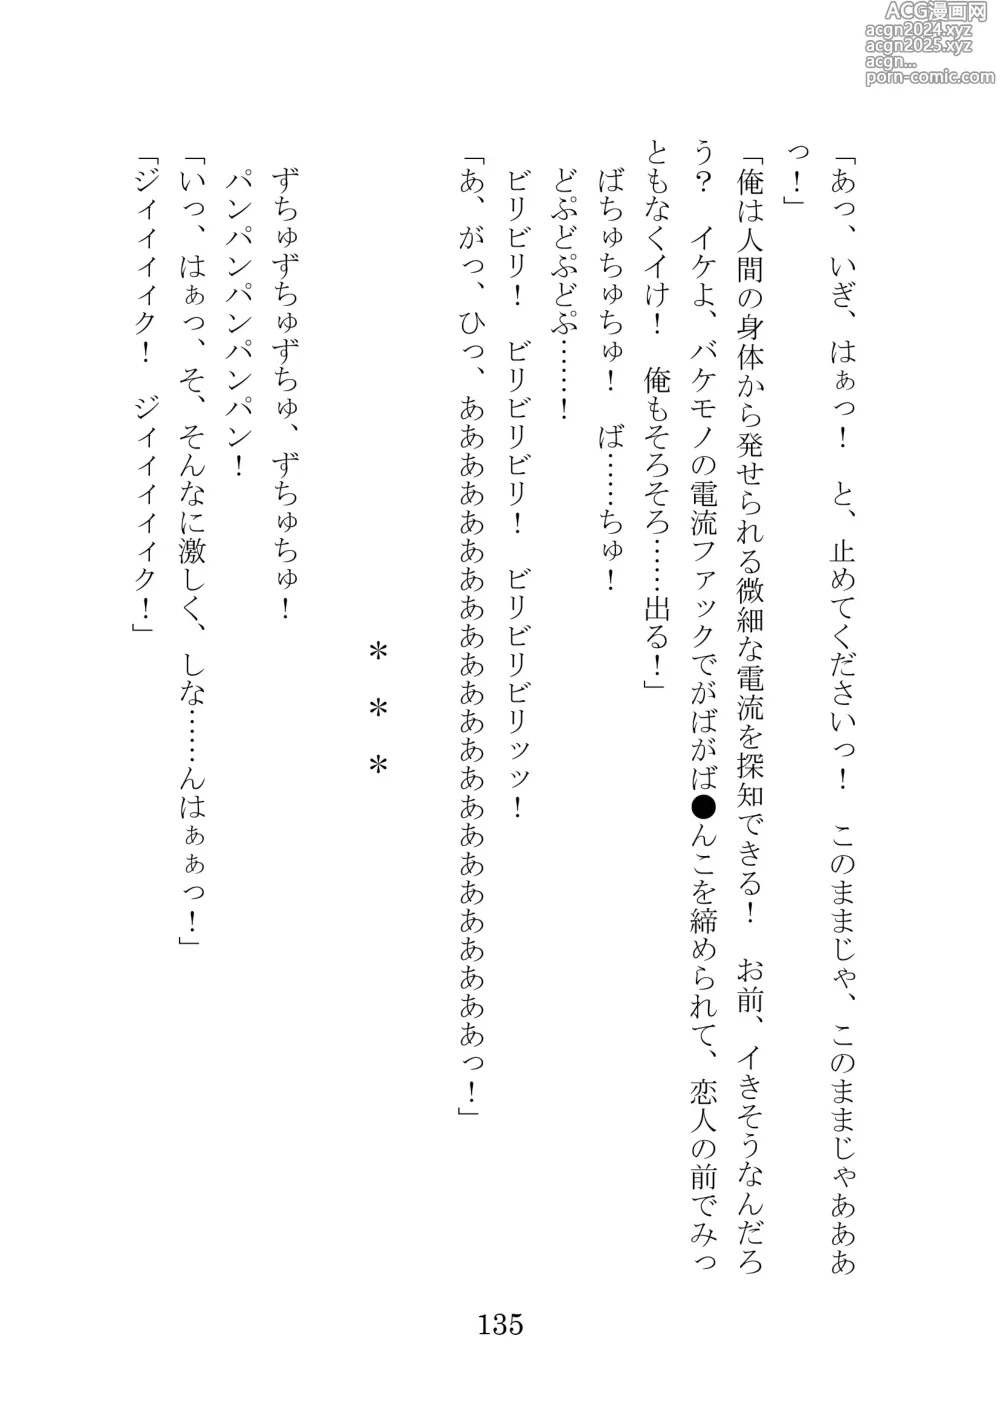 ACG漫画网
acgn2024.xyz
acgn2025.xyz
acgn...
porn-comic.com
「あっ、いぎ、はぁっ！　と、止めてくださいっ！　このままじゃ、このままじゃあああ
っ！」
「俺は人間の身体から発せられる微細な電流を探知できる！　お前、イきそうなんだろ
う？　イケよ、バケモノの電流ファックでがばがば●んこを締められて、恋人の前でみっ
ともなくイけ！　俺もそろそろ……出る！」
ばちゅちゅちゅ！　ば……ちゅ！
どぷどぷどぷ……！
ビリビリ！　ビリビリビリ！　ビリビリビリッッ！
「あ、がっ、ひっ、あああああああああああああああああああああああっ！」
＊　＊　＊
ずちゅずちゅずちゅ、ずちゅちゅ！
パンパンパンパンパン！
「いっ、はぁっ、そ、そんなに激しく、しな……んはぁぁっ！」
「ジィィィィク！　ジィィィィィク！」
135